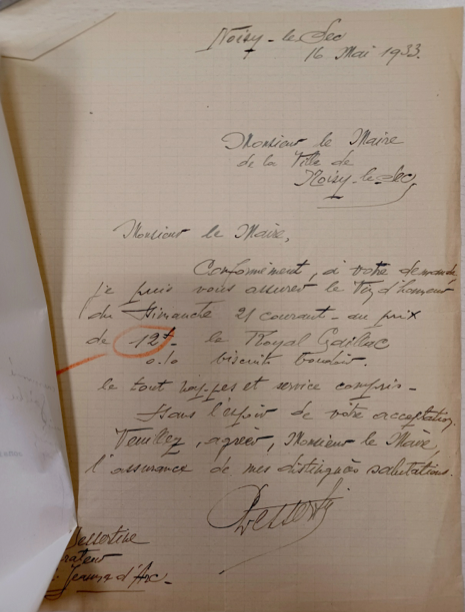 Noisy-le-Sec
16 Mai 1933.
Monsieur le Maire
de la Ville de
Noisy-le-Sec,
Monsieur le Maire,
Conformément, à votre demande
je puis vous assurer le Vin d'honneur
du Dimanche 21 courant - au prix
de 12f - le Royal Gaillac
biscuits boudoir.
le tout nappes et service compris -
Dans l'espoir de votre acceptation.
Veuillez, agréer, Monsieur le Maire,
l'assurance de mes distingués salutations.
Dessertine
Jeanne d'Arc -